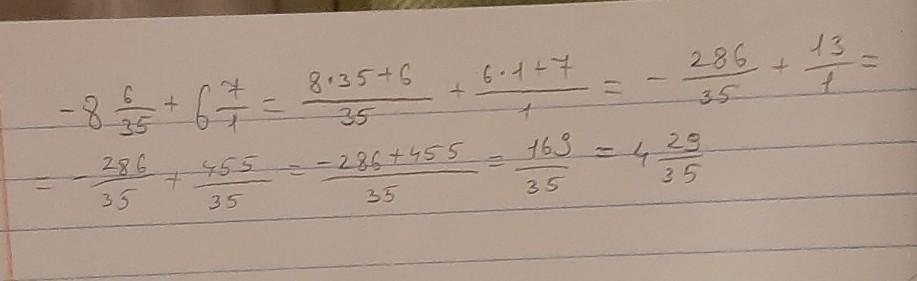 -8 6/35 + 6 7/1 = (8·35+6)/35 + (6·1+7)/1 = - 286/35 + 13/1 =
= - 286/35 + 455/35 = (-286+455)/35 = 169/35 = 4 29/35